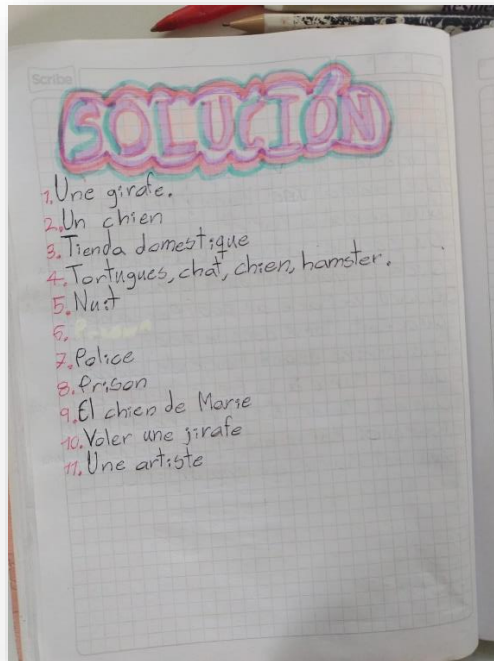 Scribe
SOLUCIÓN
1. Une girafe.
2. Un chien
3. Tienda domestique
4. Tortugues, chat, chien, hamster.
5. Nuit
6.
7. Police
8. Prison
9. El chien de Marie
10. Voler une jirafe
11. Une artiste